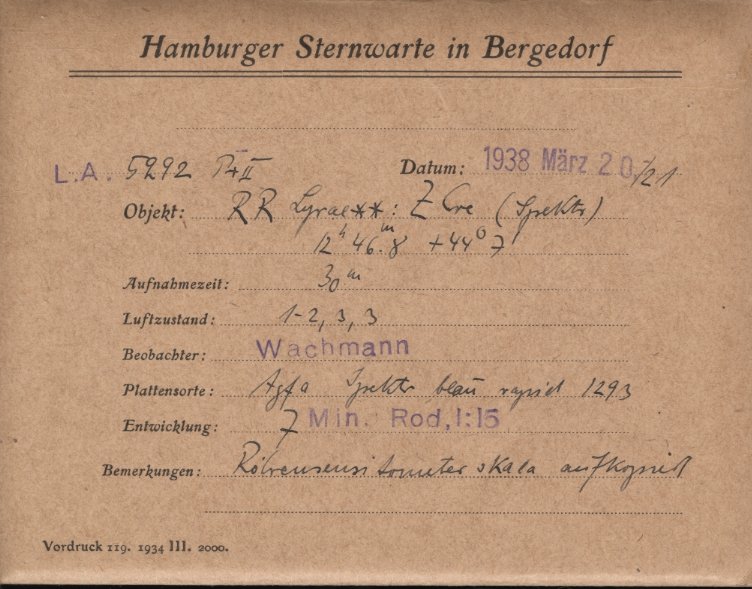 Hamburger Sternwarte in Bergedorf
L.A. 5292 P4II Datum: 1938 März 20/21
Objekt: RR Lyrae**: Z CVn (Spektr)
12h 46m.8 +44° 7
Aufnahmezeit: 30m
Luftzustand: 1-2, 3, 3
Beobachter: Wachmann
Plattensorte: Agfa Spektr blau rapid 1293
Entwicklung: 7 Min. Rod, 1:15
Bemerkungen: Röhrensensitometerskala aufkopiert
Vordruck 119. 1934 III. 2000.